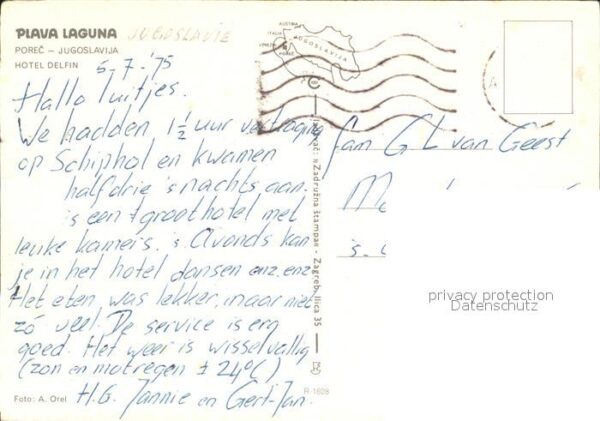 PLAVA LAGUNA JUGOSLAVIE
POREČ – JUGOSLAVIJA
HOTEL DELFIN
5-7-'75
Hallo luitjes.
We hadden 1½ uur vertraging
op Schiphol en kwamen
halfdrie 's nachts aan.
is een groot hotel met
leuke kamers. 's Avonds kan
je in het hotel dansen enz. enz.
Het eten was lekker, maar niet
zó veel. De service is erg
goed. Het weer is wisselvallig
(zon en motregen ± 24°C)
H.G. Jannie en Gert-Jan.
Foto: A. Orel
R-1628
AUSTRIA
ITALIA
JUGOSLAVIJA
POREČ
»Zadružna štampa« – Zagreb, Ilica 35
fam G L van Geest
privacy protection
Datenschutz